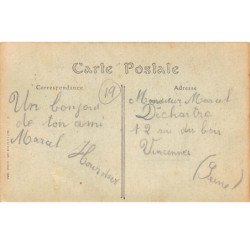 Carte Postale
Correspondance
Adresse
19
Un bonjord
de ton ami
Marcel
Monsieur Marcel
Dechartre
12 rue du bois
Vincennes
(Seine)